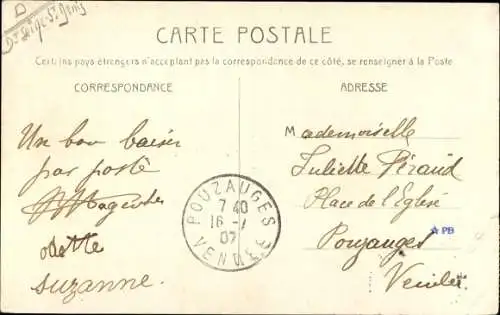 D
Dt Seine-St Denis
CARTE POSTALE
Certains pays étrangers n'acceptant pas la correspondance de ce côté, se renseigner à la Poste
CORRESPONDANCE
ADRESSE
Un bon baiser
par poste
odette
suzanne.
Mademoiselle
Juliette Péraud
Place de l'Eglise
Pouzauges
Vendée
POUZAUGES
7 40
16 -
07
VENDEE
PB